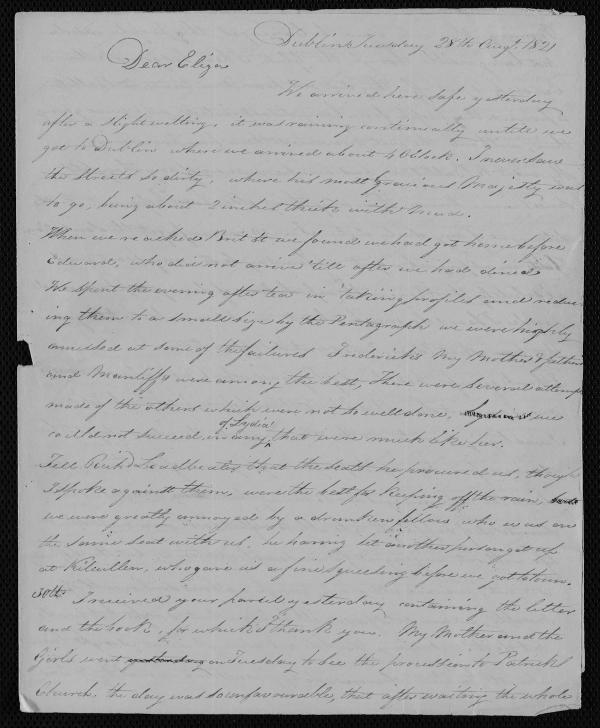 Dublin Tuesday 28th Augt. 1821
Dear Eliza
We arrived here safe yesterday
after a slight wetting, it was raining continually untill we
got to Dublin where we arrived about 4 OClock. I never saw
the streets so dirty, where his most Gracious Majesty was
to go, being about 2 inches thick with Mud.
When we reached Brit St we found we had got home before
Edward, who did not arrive 'till after we had dined
We spent the evening after tea in taking profiles and reduc-
ing them to a small size by the Pentagraph we were highly
amused at some of the failures Frederick's My Mother's & father
and Manliffs were among the best, There were several attempts
made of the others which were not so well done, we
could not succeed in any of Lydia that were much like her.
Tell Richd Leadbeater that the seats he procured us, though
I spoke against them, were the best for keeping off the rain,
we were greatly annoyed by a drunken fellow who was on
the same seat with us, he having let another person get up
at Kilcullen, who gave us a fine squeezing before we got to town.
30th I received your parcel yesterday containing the letter
and the book, for which I thank you. My Mother and the
Girls went yesterday on Tuesday to see the procession to Patricks
Church. the day was so unfavourable, that after waiting the whole